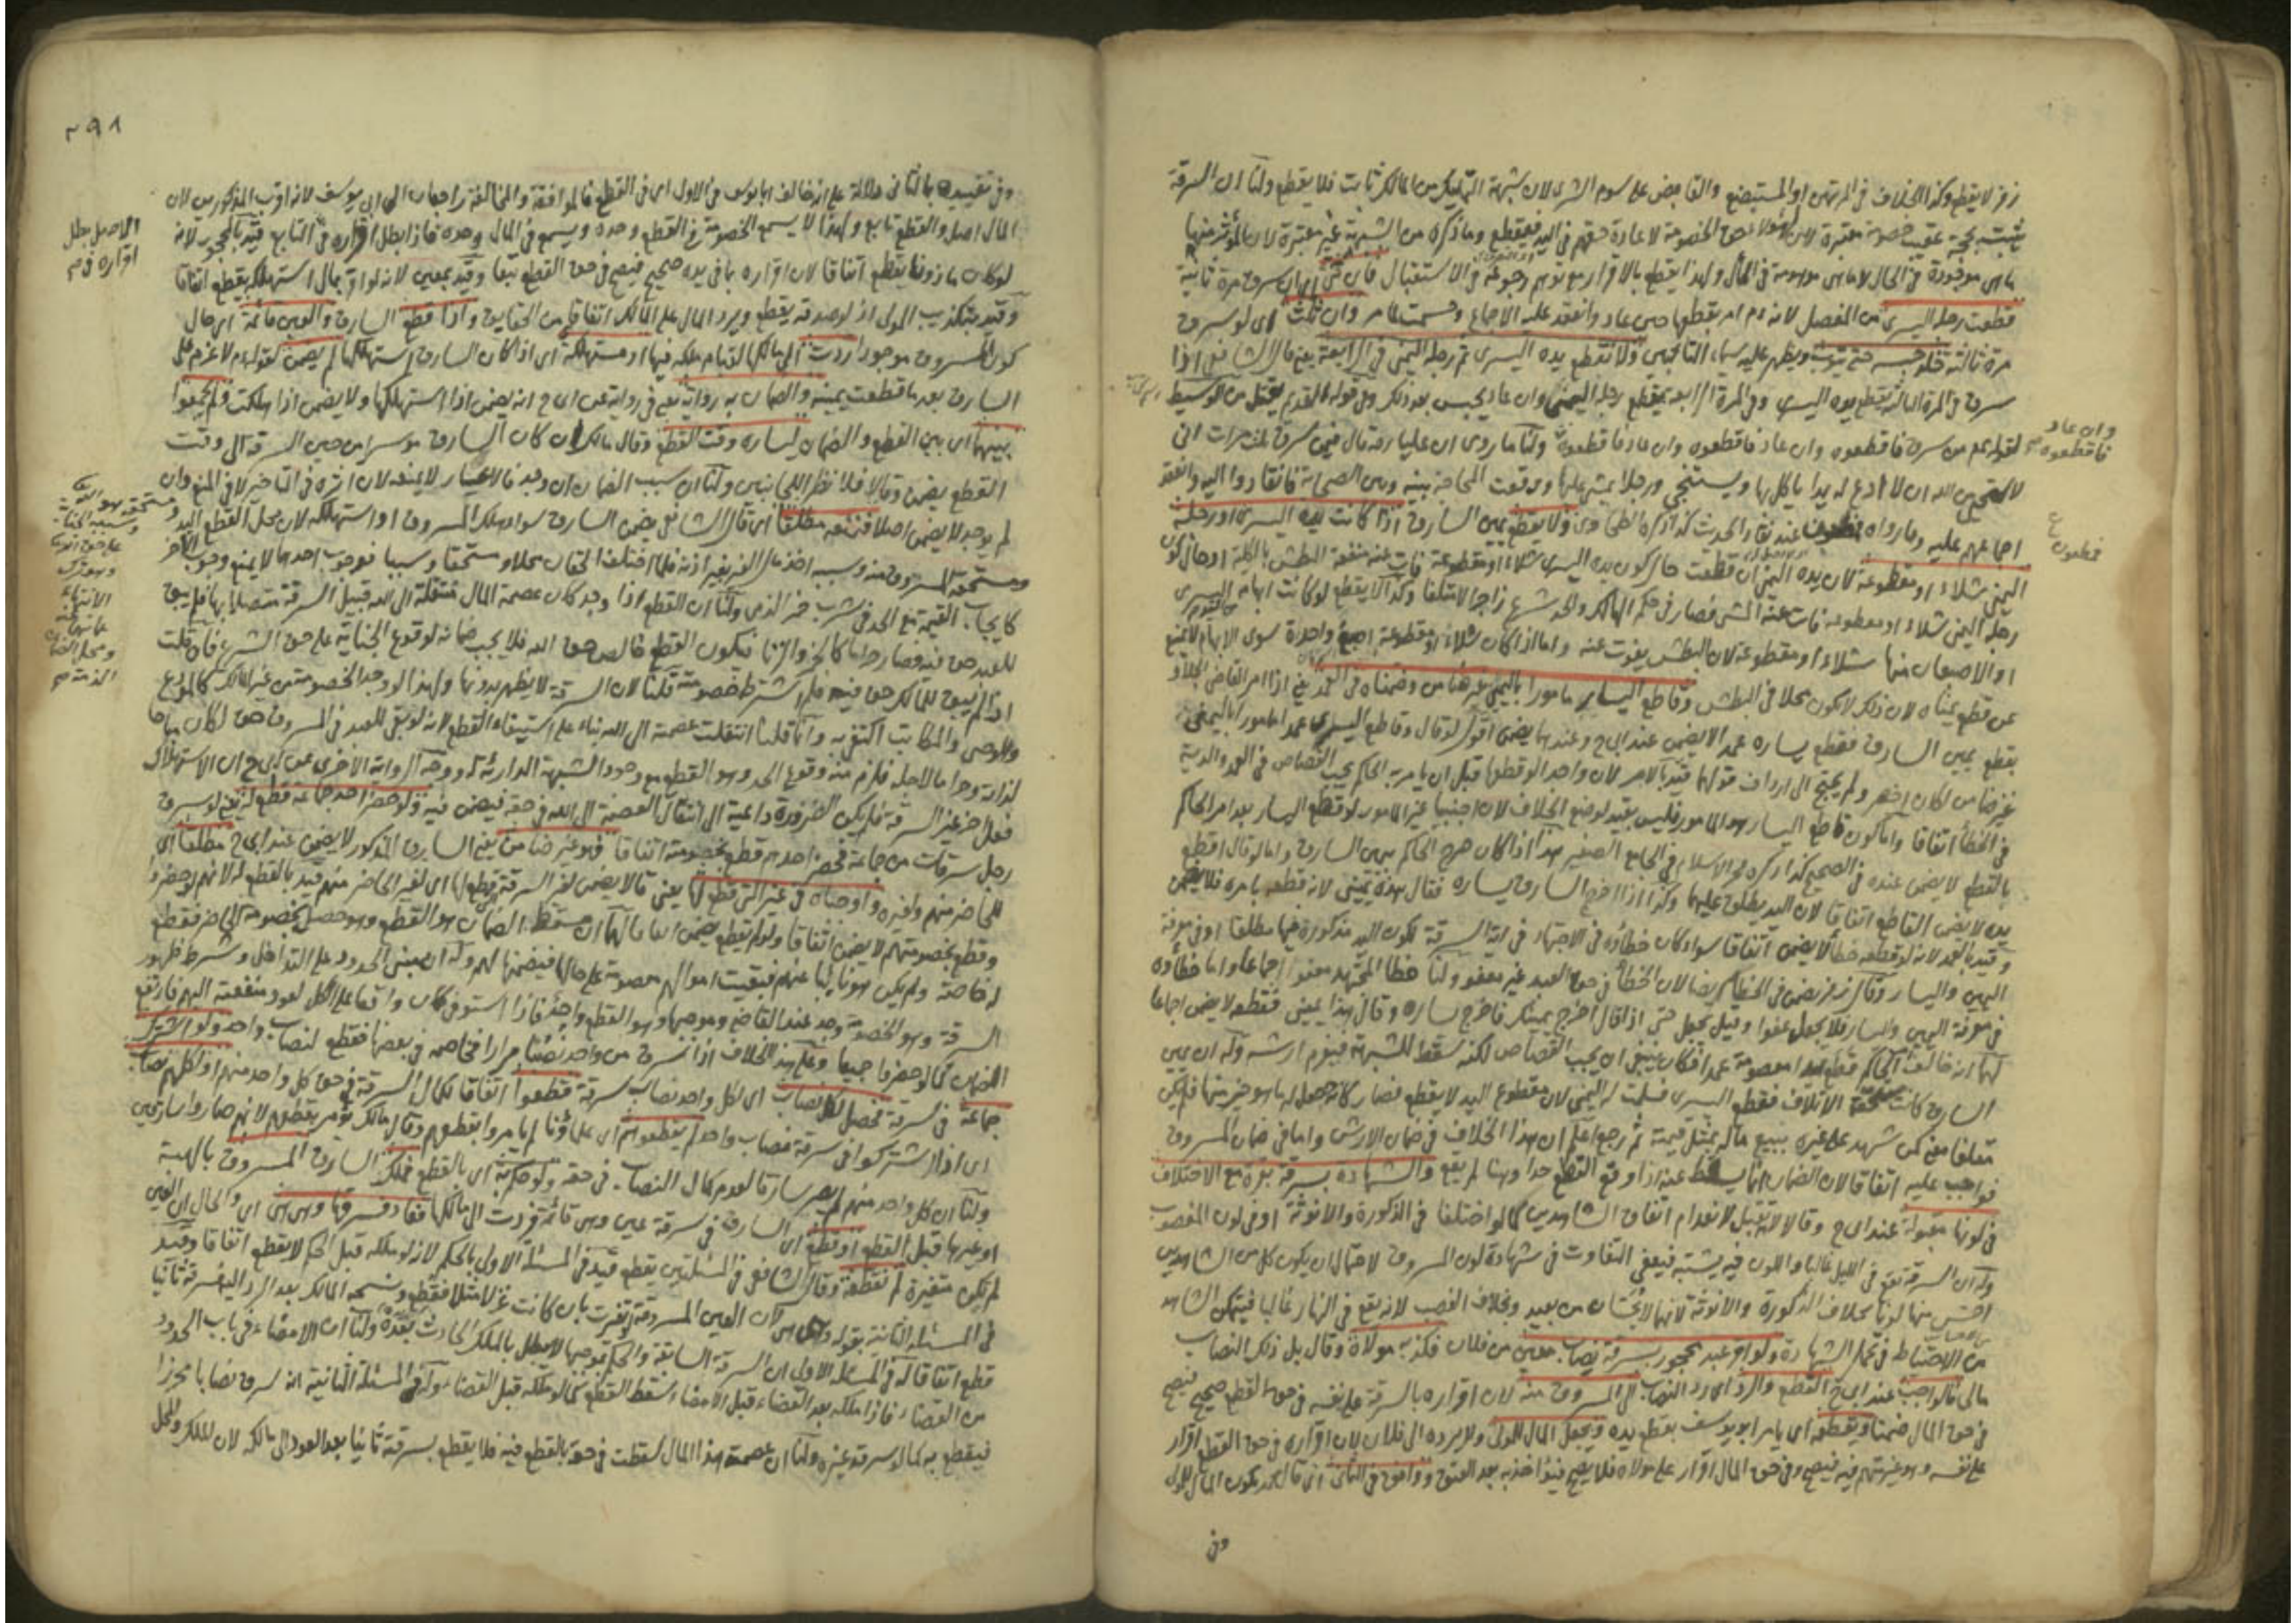 زفر لا يقطع وكذا الخلاف في المرتهن والمستبضع والقابض على سوم الشرى لان شبهة التمليك من المالك ثابت فلا يقطع ولنا ان السرقة
ما هي موجودة في الحال لا ما هي موهومة في المآل ولهذا يقطع بالاقرار مع توهم رجوعه في الاستقبال فان ثنى اي ان سرق مرة ثانية
قطعت رجله اليسرى من المفصل لانه عم امر بقطعها حين عاد وانعقد عليه الاجماع وحسمت كما مر وان ثلث اي لو سرق
مرة ثالثة خلد حبسه حتى يتوب ويظهر عليه سيماء التائبين ولا تقطع يده اليسرى ثم رجله اليمنى في الرابعة يعني قال الشافعي اذا
سرق في المرة الثالثة يقطع يده اليسرى وفي المرة الرابعة يقطع رجله اليمنى وان عاد يحبس بعد ذلك وفي قوله القديم يقتل من الوسيط
وان عاد
فاقطعوه
لقوله عم من سرق فاقطعوه وان عاد فاقطعوه وان عاد فاقطعوه ولنا ما روى ان عليا رضه قال فيمن سرق ثلث مرات اني
لاستحيي من الله ان لا ادع له يدا ياكل بها ويستنجي ورجلا يمشي عليها ووقعت المحاجة بينه وبين الصحابة فانقادوا اليه وانعقد
اجماعهم عليه وما رواه عند نقاد الحديث كذا ذكره الطحاوي ولا يقطع يمين السارق اذا كانت يده اليسرى او رجله
اليمنى شلاء او مقطوعة لان يده اليمنى ان قطعت حال كون يده اليسرى شلاء او مقطوعة فات عنه منفعة البطش بالكلية او حال كون
رجله اليمنى شلاء او مقطوعة فات عنه المشي فصار في حكم الهالك والحد شرع زاجرا لا متلفا وكذا لا يقطع لو كانت ابهام اليسرى
او الاصبعان منها شلاء او مقطوعة لان البطش يفوت عنه واما اذا كان شلاء او مقطوعة اصبع واحدة سوى الابهام لا يمنع
عن قطع يمناه لان ذلك لا يكون مخلا في البطش وقاطع اليسار مامورا باليمنى غير ضامن وضمناه في العمد يعني اذا امر القاضي الجلاد
بقطع يمين السارق فقطع يساره عمدا لا يضمن عند ابي ح وعندهما يضمن اقول لو قال وقاطع اليسرى عمدا مامورا باليمنى
غير ضامن لكان اخصر ولم يحتج الى ارداف قولهما قيد بالامر لان واحدا لو قطعها قبل ان يامر به الحاكم يجب القصاص في العمد والدية
في الخطأ اتفاقا واما كون قاطع اليسار هو المامور فليس بقيد لوضع الخلاف لان اجنبيا غير المامور لو قطع اليسار بعد امر الحاكم
بالقطع لا يضمن عنده في الصحيح كذا ذكره فخر الاسلام في الجامع الصغير هذا اذا كان صرح الحاكم بيمين السارق واما لو قال اقطع
يده لا يضمن القاطع اتفاقا لان اليد يطلق عليهما وكذا اذا اخرج السارق يساره فقال هذه يميني لانه قطعه بامره فلا يضمن
وقيد بالعمد لانه لو قطعه خطأ لا يضمن اتفاقا سواء كان خطأؤه في الاجتهاد في اية السرقة لكون اليد مذكورة فيها مطلقا او في معرفة
اليمين واليسار وقال زفر يضمن في الخطأ ايضا لان الخطأ في حق العبد غير معفو ولنا خطأ المجتهد معفو اجماعا واما خطأؤه
في معرفة اليمين واليسار فلا يجعل عفوا وقيل يجعل حتى اذا قال اخرج يمينك فاخرج يساره وقال هذا يميني فقطعه لا يضمن اجماعا
لهما انه خالف الحاكم فقطع يدا معصومة عمدا فكان ينبغي ان يجب القصاص لكنه سقط للشبهة فيغرم ارشه وله ان يمين
السارق كانت مستحقة الاتلاف فقطع اليسرى فسلمت له اليمنى لان مقطوع اليد لا يقطع فصار كانه حصل له ما هو خير منها فلم يكن
متلفا معنى كمن شهد على غيره ببيع ماله بمثل قيمته ثم رجع اعلم ان هذا الخلاف في ضمان الارش واما في ضمان المسروق
فواجب عليه اتفاقا لان الضمان انما يسقط عنه اذا وقع القطع حدا وهنا لم يقع والشهادة بسرقة بقرة مع الاختلاف
في لونها مقبولة عند ابي ح وقالا لا تقبل لانعدام اتفاق الشاهدين كما لو اختلفا في الذكورة والانوثة او في لون المغصوب
وله ان السرقة تقع في الليل غالبا واللون فيه يشتبه فيعفى التفاوت في شهادة لون المسروق لاحتمال ان يكون كل من الشاهدين
احس منها لونا بخلاف الذكورة والانوثة لانهما لا يحسان من بعيد وبخلاف الغصب لانه يقع في النهار غالبا فيتمكن الشاهد
من الاحتياط في تحمل الشهادة ولو اقر عبد محجور بسرقة نصاب معين من فلان فكذبه مولاه وقال بل ذلك النصاب
مالي فالواجب عند ابي ح القطع والرد اي رد النصاب الى المسروق منه لان اقراره بالسرقة على نفسه في حق القطع صحيح فيصح
في حق المال ضمنا ويقطعه اي يامر ابو يوسف بقطع يده ويجعل المال للمولى ولا يرده الى فلان لان اقراره في حق القطع اقرار
على نفسه وهو غير متهم فيه فيصح وفي حق المال اقرار على مولاه فلا يصح فيؤاخذ به بعد العتق ووافق في الثاني اي قال محمد يكون المال للمولى
وفي
٢٩٨
وفي تقييده بالثاني دلالة على انه خالف ابا يوسف في الاول اي في القطع فالموافقة والمخالفة راجعان الى ابي يوسف لانه اقرب المذكورين لان
المال اصل والقطع تابع ولهذا لا يسمع الخصومة في القطع وحده ويسمع في المال وحده فاذا بطل اقراره في التابع قيد بالمحجور لانه
الاصل بطل
اقراره في
لو كان ماذونا يقطع اتفاقا لان اقراره بما في يده صحيح فيصح في حق القطع تبعا وقيد بمعين لانه لو اقر بمال استهلكه يقطع اتفاقا
وقيد بتكذيب المولى اذ لو صدقه يقطع ويرد المال على المالك اتفاقا من الحقايق واذا قطع السارق والعين قائمة اي حال
كون المسروق موجودا ردت الى مالكها لقيام ملكه فيها او مستهلكة اي اذا كان السارق استهلكها لم يضمن لقوله عم لا غرم على
السارق بعد ما قطعت يمينه والضمان به رواية يعني في رواية عن ابي ح انه يضمن اذا استهلكها ولا يضمن اذا هلكت ولم يجمعوا
بينهما اي بين القطع والضمان ليساره وقت القطع وقال مالك ان كان السارق موسرا من حين السرقة الى وقت
القطع يضمن وقالا فلا نظرا للجانبين ولنا ان سبب الضمان ان وجد فالاعسار لا يمنعه لان اثره في التاخير لا في المنع وان
لم يوجد لا يضمن اصلا فنمنعه مطلقا اي قال الشافعي يضمن السارق سواء هلك المسروق او استهلكه لان محل القطع اليد
ومستحقه المسروق منه وسببه اخذ مال الغير بغير اذنه فلما اختلف الحقان محلا ومستحقا وسببا فوجوب احدهما لا يمنع وجوب الآخر
كايجاب القيمة مع الحد في شرب خمر الذمي ولنا ان القطع اذا وجد كان عصمة المال منتقلة الى الله قبيل السرقة متصلا بها فلم يبق
للعبد حق فيه فصار حراما كالخمر والزنا فيكون القطع خالص حق الله فلا يجب ضمانه لوقوع الجناية على حق الشرع فان قلت
اذا لم يبق للمالك حق فيه فلم اشترط خصومته قلنا لان السرقة لا يظهر بدونها ولهذا لو وجد الخصومة من غير المالك كالمودع
والوصي والمكاتب اكتفي به وانما قلنا انتقلت عصمته الى الله بناء على استيفاء القطع لانه لو بقي للعبد في المسروق حق لكان مباحا
لذاته وحراما لاجله فلزم منه وقوع الحد وهو القطع مع وجود الشبهة الدارئة له ووجه الرواية الاخرى عن ابي ح ان الاستهلاك
فعل اخر غير السرقة فلم يكن الضرورة داعية الى انتقال العصمة الى الله في حقه فيضمن فيه ولو حضر احد جماعة قطع له يعني لو سرق
رجل سرقات من جماعة فحضر احدهم قطع بخصومته اتفاقا فهو غير ضامن يعني السارق المذكور لا يضمن عند ابي ح مطلقا اي
للحاضر منهم ولغيره واوجباه في غير التي قطع لها يعني قالا يضمن لغير السرقة قطع لها اي لغير الحاضر منهم قيد بالقطع له لانهم لو حضروا
وقطع بخصومتهم لا يضمن اتفاقا ولو لم يقطع يضمن اتفاقا لهما ان مسقط الضمان هو القطع وهو حصل بخصومة الحاضر فقطع
له خاصة ولم يكن هو نائبا عنهم فبقيت اموالهم معصومة على حالها فيضمنها لهم وله ان مبنى الحدود على التداخل وشرط ظهور
السرقة وهو الخصومة وجد عند القاضي وموجبها وهو القطع واحد فاذا استوفى كان واقعا على الكل لعود منفعته اليهم فارتفع
الضمان كما لو حضروا جميعا وعلى هذا الخلاف اذا سرق من واحد نصبا مرارا فخاصمه في بعضها فقطع لنصاب واحد ولو اشترك
جماعة في سرقة فحصل لكل نصاب اي لكل واحد نصاب سرقة قطعوا اتفاقا لكمال السرقة في حق كل واحد منهم او لكلهم نصاب
اي اذا اشتركوا في سرقة نصاب واحد لم يقطعوا هم اي علماؤنا لم يامروا بقطعهم وقال مالك يؤمر بقطعهم لانهم صاروا سارقين
ولنا ان كل واحد منهم لم يصر سارقا لعدم كمال النصاب في حقه ولو حكم به اي بالقطع فملك السارق المسروق بالهبة
او غيرها قبل القطع او قطع اي السارق في سرقة عين وهي قائمة فردت الى مالكها فعاد فسرقها وهي هي اي والحال ان العين
لم يكن متغيرة لم نقطعه وقال الشافعي في المسئلتين يقطع قيد في المسئلة الاولى بالحكم لانه لو ملكه قبل الحكم لا يقطع اتفاقا وقيد
في المسئلة الثانية بقوله وهي هي لان العين المسروقة لو تغيرت بان كانت غزلا مثلا فقطع ونسجه المالك بعد الرد اليه فسرقه ثانيا
قطع اتفاقا له في المسئلة الاولى ان السرقة السابقة والحكم بموجبها لا يبطل بالملك الحادث بعده ولنا ان الامضاء في باب الحدود
من القضاء فاذا ملكه بعد القضاء قبل الامضاء سقط القطع كما لو ملكه قبل القضاء وله في المسئلة الثانية انه سرق نصابا محرزا
فيقطع به كما لو سرقه غيره ولنا ان عصمة هذا المال سقطت في حقه بالقطع فيه فلا يقطع بسرقته ثانيا بعد العود الى مالكه لان الملك والمحل